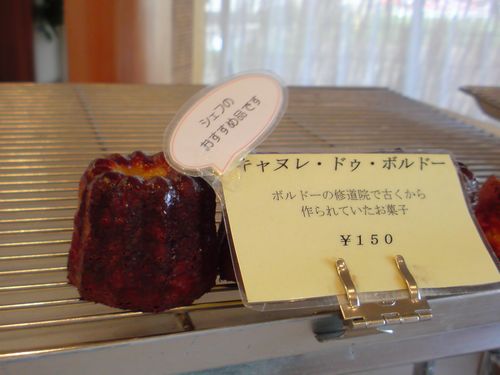 シェフの
おすすめ品です
キャヌレ・ドゥ・ボルドー
ボルドーの修道院で古くから
作られていたお菓子
￥150